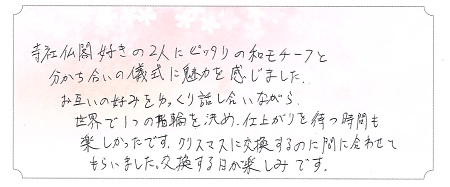 寺社仏閣好きの2人にピッタリの和モチーフと
分かち合いの儀式に魅力を感じました。
お互いの好みをゆっくり話し合いながら、
世界で1つの指輪を決め、仕上がりを待つ時間も
楽しかったです。クリスマスに交換するのに間に合わせて
もらいました。交換する日が楽しみです。